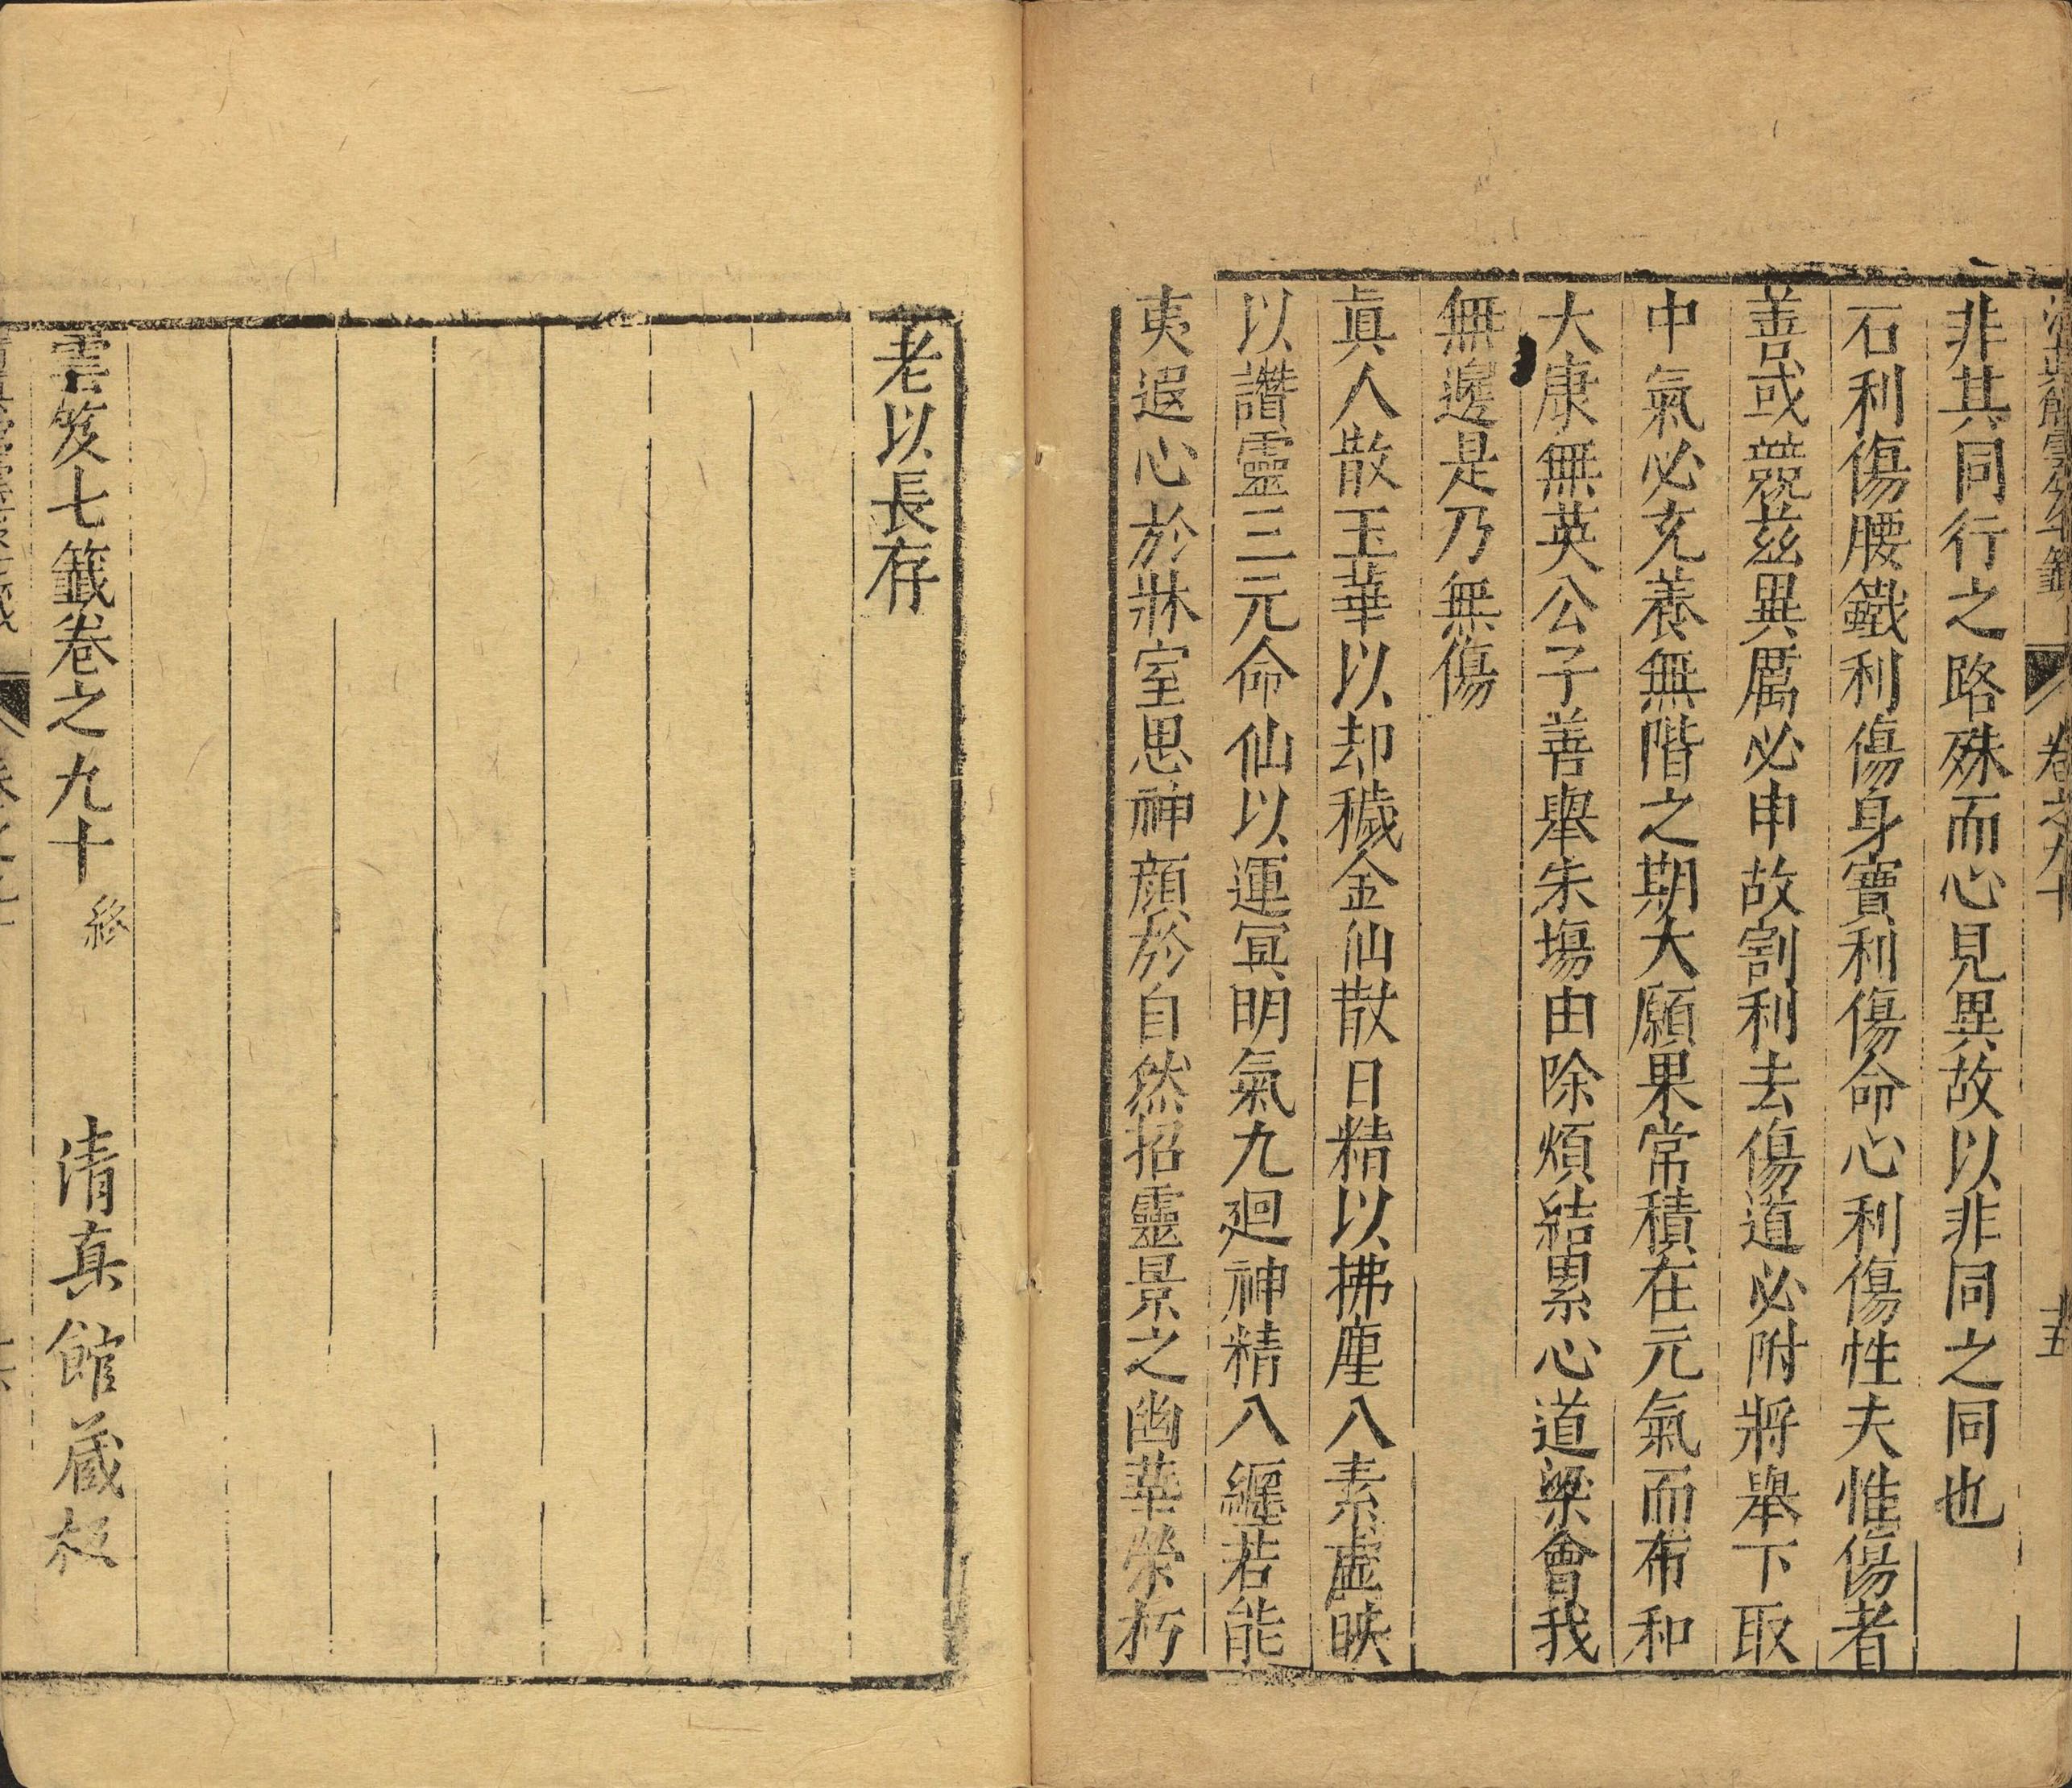 清真館雲笈七籤
卷之九十
十五
非其同行之路殊而心見異故以非同之同也
石利傷腰鐵利傷身寶利傷命心利傷性夫惟傷者
善或競茲異厲必申故割利去傷道必附將舉下取
中氣必充養無階之期大願果常積在元氣而布和
大康無英公子善舉朱塲由除煩結累心道梁會我
無邊是乃無傷
眞人散玉華以却穢金仙散日精以拂塵八素虛映
以讚靈三元命仙以運冥明氣九廻神精八纒若能
夷遐心於牀室思神顔於自然招靈景之幽華榮朽
老以長存
雲笈七籤卷之九十 終
清真館藏板